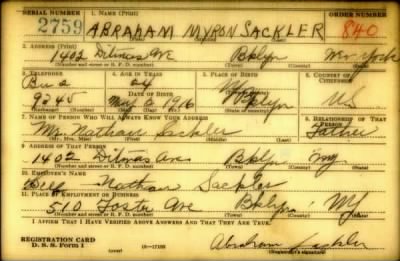 SERIAL NUMBER 1. NAME (Print) ORDER NUMBER
2759 ABRAHAM MYRON SACKLER 840
2. ADDRESS (Print)
1402 Ditmas Ave Bklyn New York
(Number and street or R. F. D. number) (Town) (County) (State)
3. TELEPHONE 4. AGE IN YEARS 5. PLACE OF BIRTH 6. COUNTRY OF CITIZENSHIP
24
DATE OF BIRTH Bklyn
9245 May 3 1916 U S
7. NAME OF PERSON WHO WILL ALWAYS KNOW YOUR ADDRESS 8. RELATIONSHIP OF THAT PERSON
Mr. Nathan Sackler Father
(Mr., Mrs., Miss) (First) (Middle) (Last)
9. ADDRESS OF THAT PERSON
1402 Ditmas Ave Bklyn
(Number and street or R. F. D. number) (Town) (County) (State)
10. EMPLOYER'S NAME
Nathan Sackler
11. PLACE OF EMPLOYMENT OR BUSINESS
510 Foster Ave Bklyn NY
(Number and street or R. F. D. number) (Town) (County) (State)
I AFFIRM THAT I HAVE VERIFIED ABOVE ANSWERS AND THAT THEY ARE TRUE.
REGISTRATION CARD
D. S. S. Form 1 Abraham Sackler
(Registrant's signature)